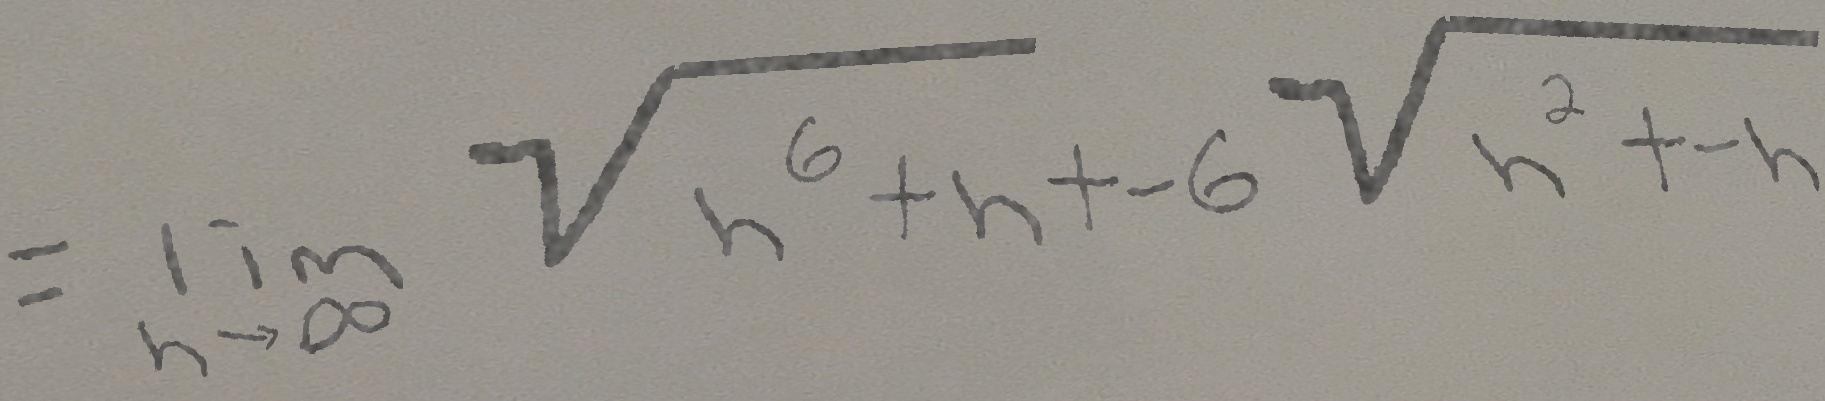 = lim n→∞ √(n⁶ + n + -6) √(n² + -n)